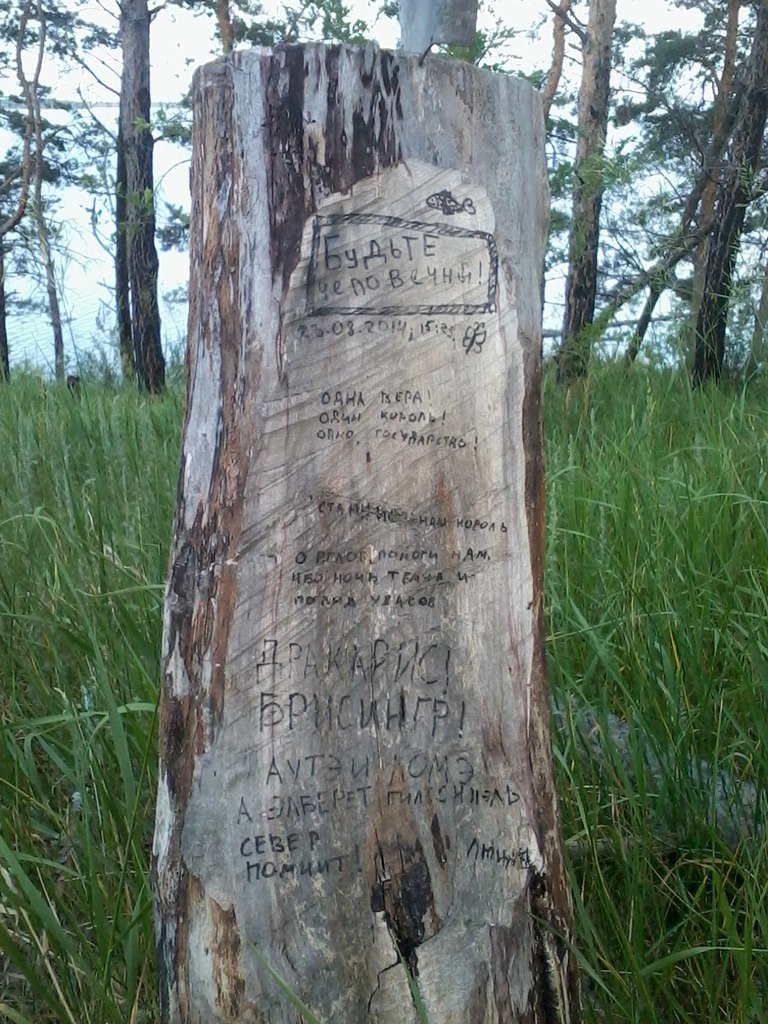 Будьте
человечны!
23.08.2014, 15:23
ОДНА ВЕРА!
ОДИН КОРОЛЬ!
ОДНО ГОСУДАРСТВО!
СТАННИС НАШ КОРОЛЬ
О РГЛОР, ПОМОГИ НАМ,
ИБО НОЧЬ ТЕМНА И
ПОЛНА УЖАСОВ
ДРАКАРИС!
БРИСИНГР!
АУТЭ И ЛОМЭ
А ЭЛБЕРЕТ ГИЛТОНИЭЛЬ
СЕВЕР
ПОМНИТ!